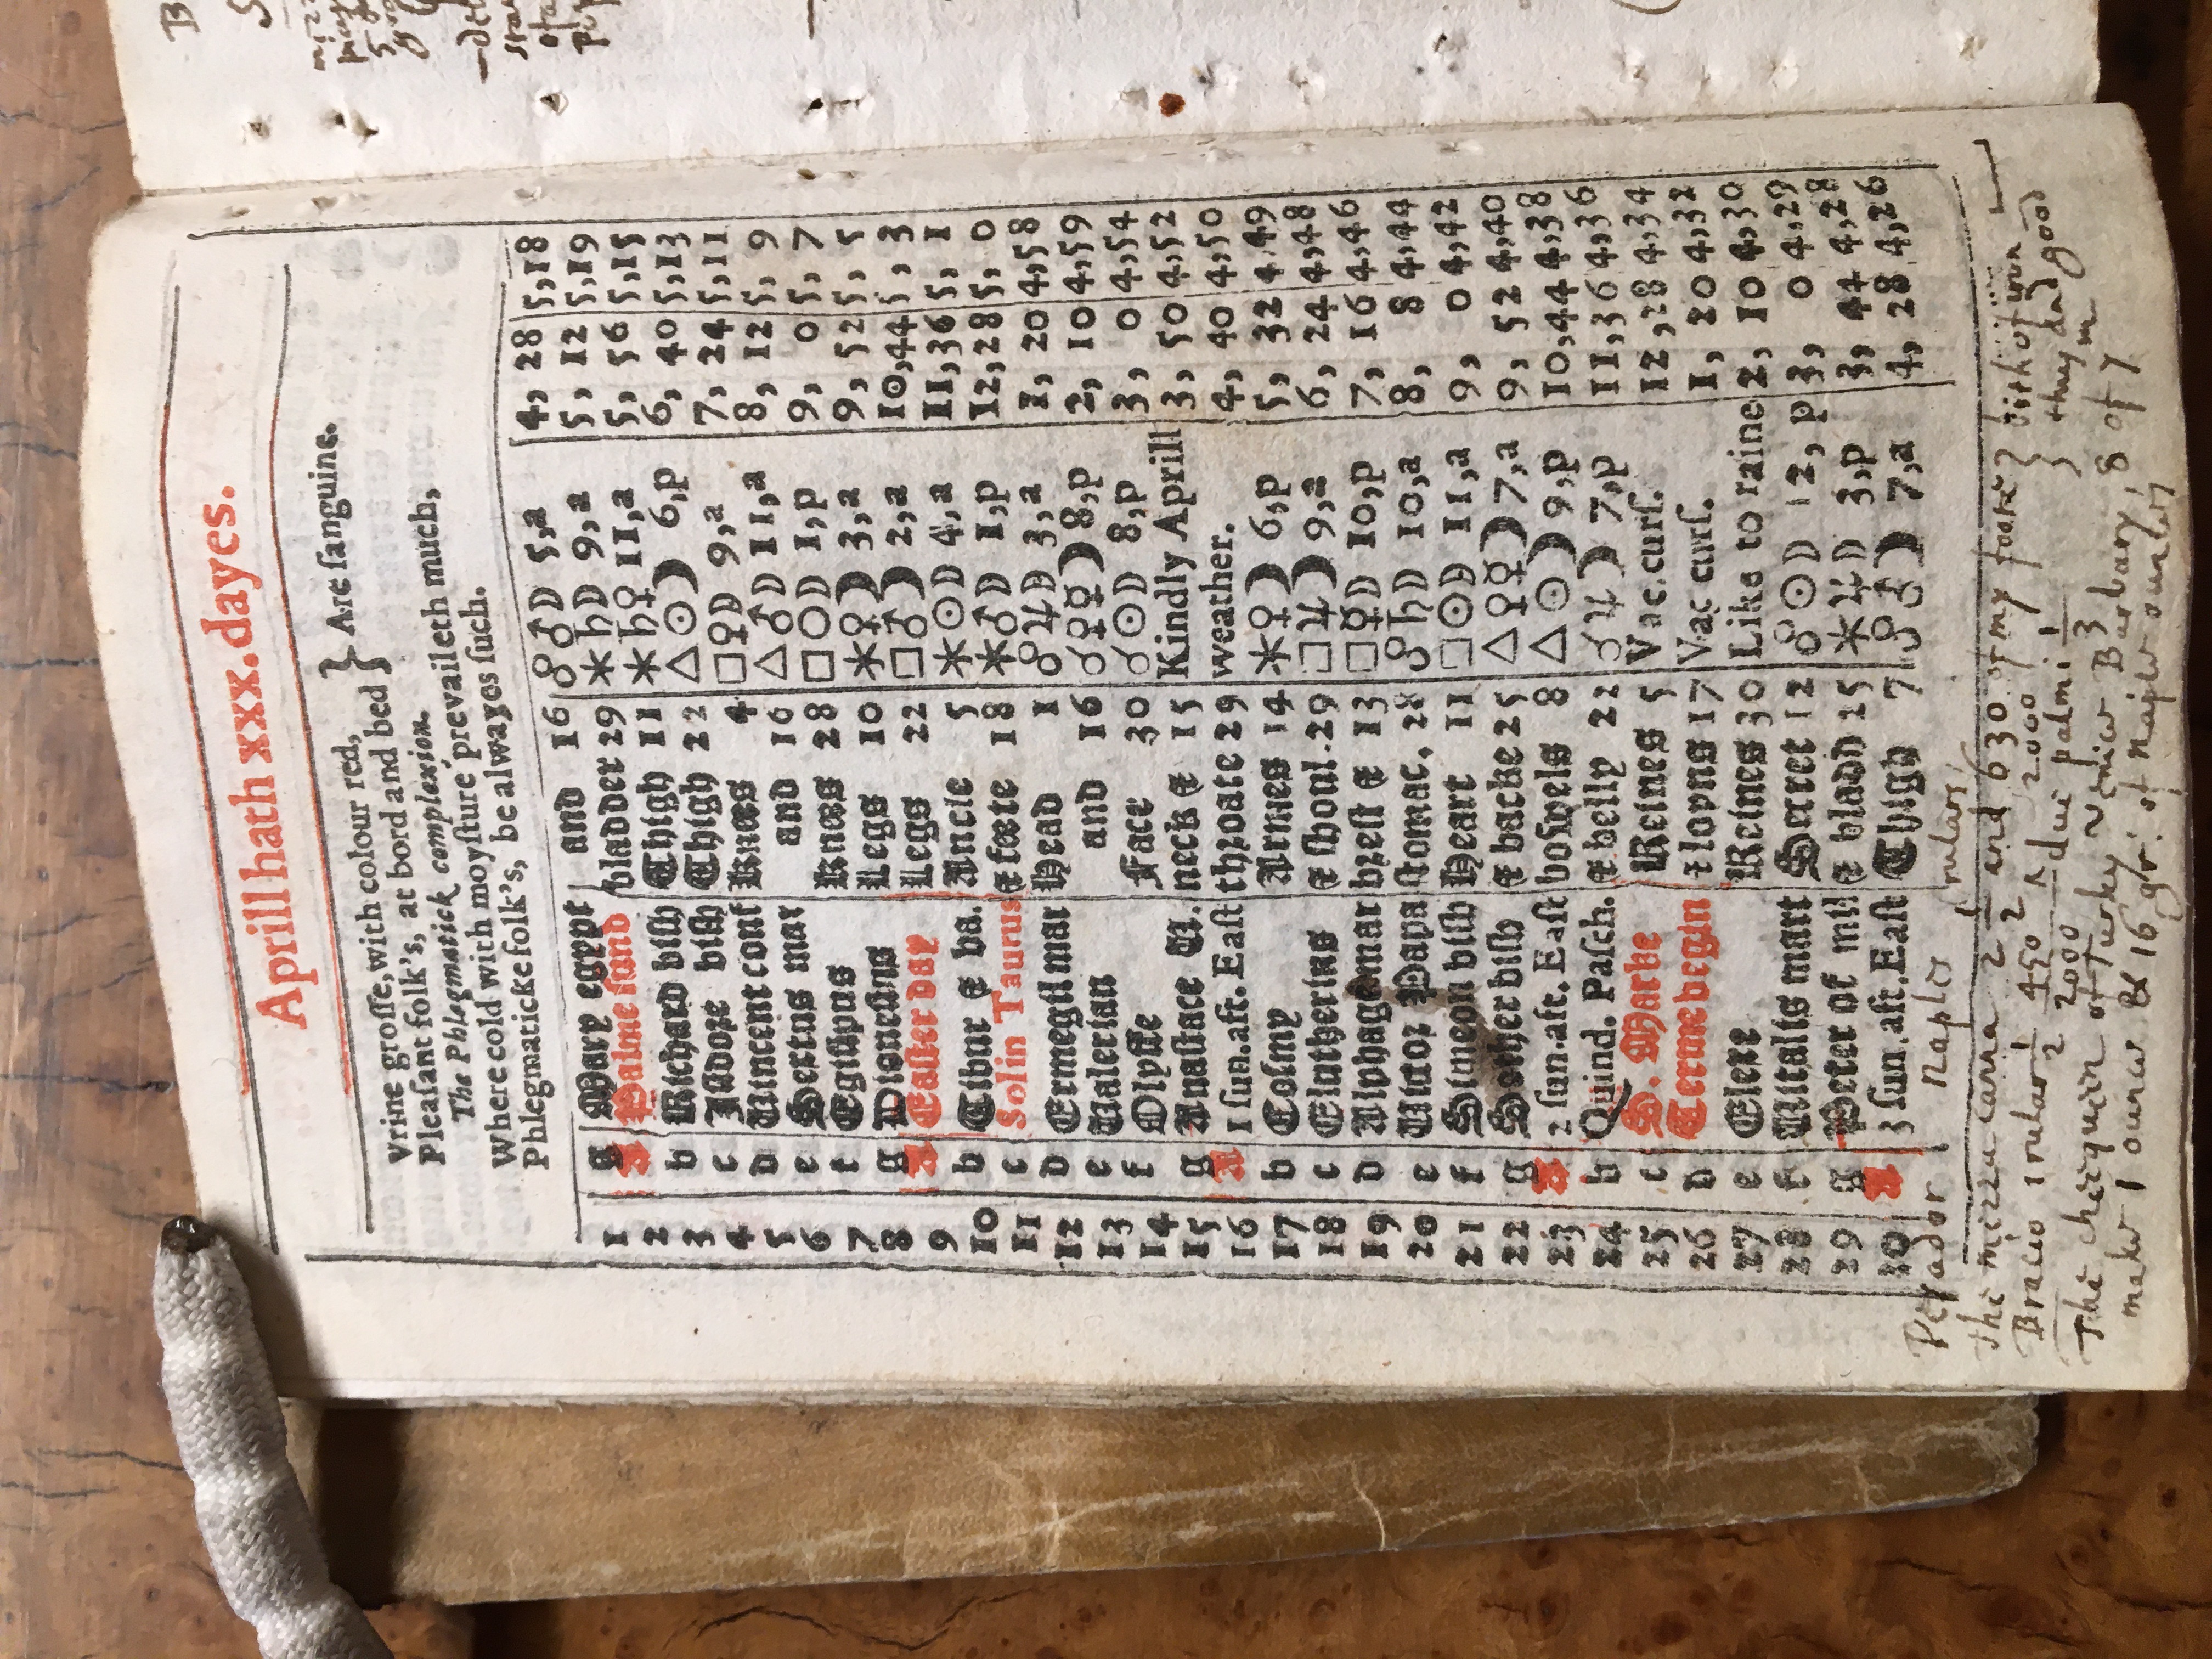 Aprill hath xxx. dayes.
Vrine grosse, with colour red, } Are sanguine.
Pleasant folk's, at bord and bed }
The Phlegmatick complexion.
Where cold with moysture prevaileth much,
Phlegmaticke folk's, be alwayes such.
1 g Mary egypt and 16 ☍♂☽ 5,a 4, 28 5,18
2 A Palme sund bladder 29 ✶♄☽ 9,a 5, 12 5,19
3 b Richard bish Thigh 11 ✶♄♀ 11,a 5, 56 5,15
4 c Isidore bish Thigh 22 △☉☽ 6,p 6, 40 5,13
5 d Vincent conf Knees 4 □♀☽ 9,a 7, 24 5,11
6 e Sextus mar and 16 △♂☽ 11,a 8, 12 5, 9
7 f Egisipus Knees 28 □☉☽ 1,p 9, 0 5, 7
8 g Dionesius Legs 10 ✶♀☽ 3,a 9, 52 5, 5
9 A Easter day Legs 22 □♂☽ 2,a 10,44 5, 3
10 b Tibur & va. Ancle 5 ✶☉☽ 4,a 11,36 5, 1
11 c Sol in Taurus & feete 18 ✶♂☽ 1,p 12,28 5, 0
12 d Ermegil mar Head 1 ☍♃☽ 3,a 1, 20 4,58
13 e Valerian and 16 ☌☿☽ 8,p 2, 10 4,59
14 f Olysse Face 30 ☌☉☽ 8,p 3, 0 4,54
15 g Anastace Ti. neck & 15 Kindly Aprill 3, 50 4,52
16 A 1 sun. aft. East throate 29 weather. 4, 40 4,50
17 b Cosmy Armes 14 ✶♀☽ 6,p 5, 32 4,49
18 c Elutherius & shoul. 29 □♃☽ 9,a 6, 24 4,48
19 d Alphage mar brest & 13 □☿☽ 10,p 7, 16 4,46
20 e Victor Papa stomac. 28 ☍♄☽ 10,a 8, 8 4,44
21 f Simeon bish Heart 11 □☉☽ 11,a 9, 0 4,42
22 g Sother bish & backe 25 △♀☿☽ 7,a 9, 52 4,40
23 A 2 sun. aft. East bowels 8 △☉☽ 9,p 10,44 4,38
24 b Quind. Pasch. & belly 22 ☌♃☽ 7,p 11,36 4,36
25 c S. Marke Reines 5 Vac. curs. 12,28 4,34
26 d Terme begin & loyns 17 Vac curs. 1, 20 4,32
27 e Clete Reines 30 Like to raine 2, 10 4,30
28 f Vitalis mart Secret 12 ☍☉☽ 12,p 3, 0 4,29
29 g Peter of mil & bladd 25 ✶♃☽ 3,p 3, 44 4,28
30 A 3 sun. aft. East Thigh 7 ☍♂☽ 7,a 4, 28 4,26
Naples
The mizza canna 2 1/2 and 630 of my foote
Bracio
The chequin of Turky Venice Barbary, 8 of 7
make 1 ounce & 16 gr: of Naples ounces